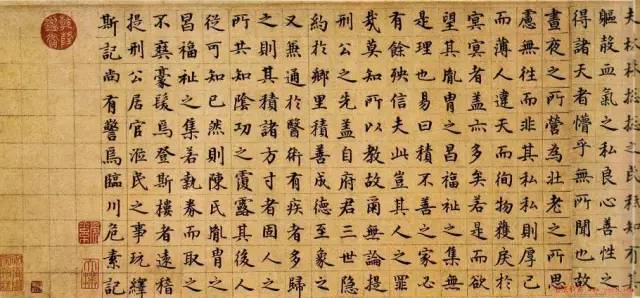 夫林林揔揔之民秖知有
軀殼血氣之私良心善性之
得諸天者懵乎無所聞也故
晝夜之所營為壯老之所思
慮無徃而非其私私則厚己
而薄人違天而徇物獲戾於
冥冥者盖亦多矣若是而欲
望其胤胄之昌福祉之集無
是理也易曰積不善之家必
有餘殃信夫此豈其人之罪
哉莫知所以教故爾無論提
刑公之先盖自府君三世隐
約於鄉里積善成德至彖之
又兼通於醫術有疾者多歸
之則其積諸方寸者固人之
所共知陰功之霞露其後人
從可知已然則陳氏胤胄之
昌福祉之集若執券而取之
不爽豪髮焉登斯樓者遠稽
提刑公居官涖民之事玩繹
斯記尚有警焉臨川危素記